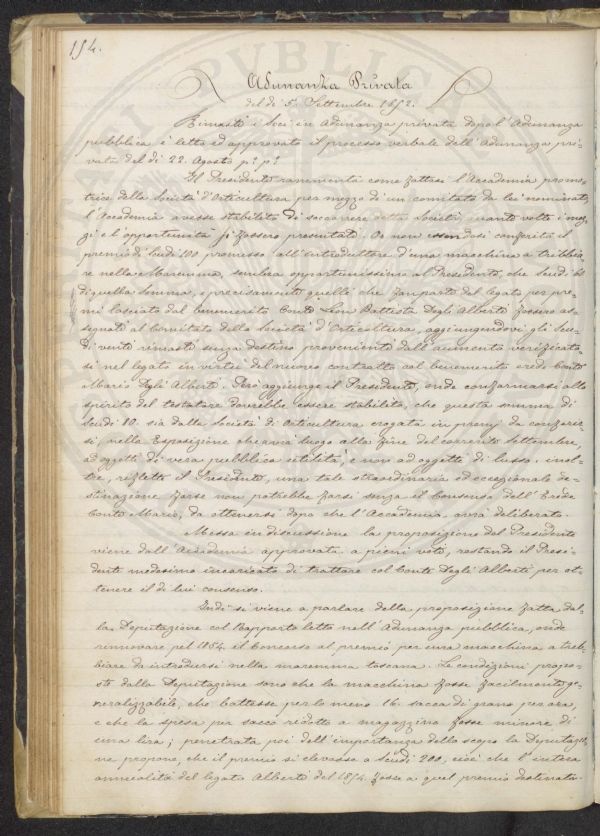 154.
Adunanza Privata
del dì 5. Settembre 1852.
Rimasti i Soci in Adunanza privata dopo l'Adunanza
pubblica è letto ed approvato il processo verbale dell'Adunanza pri-
vata del dì 22. Agosto p.° p.°
Il Presidente rammenta come fattasi l'Accademia promo-
trice della Società d'Orticultura per mezzo di un comitato da lei nominato
l'Accademia avesse stabilito di soccorrere detta Società, quante volte i mez-
zi e l'opportunità si fossero presentati. Or non essendosi conferito il
premio di Scudi 100 promesso all'introduttore d'una macchina a trebbia-
re nella Maremma, sembra opportunissimo al Presidente, che Scudi 60
di quella somma, e precisamente quelli che fan parte del legato per pre-
mi lasciato dal benemerito Conte Leon Battista Degli Alberti fossero as-
segnati al Comitato della Società d'Orticultura, aggiungendovi gli Scu-
di venti rimasti senza destino provenienti dall'aumento verificato-
si nel legato in virtù del nuovo contratto col benemerito erede Conte
Mario Degli Alberti. Però aggiunge il Presidente, onde conformarsi allo
spirito del testatore dovrebbe essere stabilito, che questa somma di
Scudi 80. sia dalla Società di Orticultura erogata in premj da conferir-
si, nella Esposizione che avrà luogo alla fine del corrente Settembre,
ad oggetti di vera pubblica utilità, e non ad oggetti di lusso. inol-
tre, riflette il Presidente, una tale straordinaria ed eccezionale de-
stinazione forse non potrebbe farsi senza il consenso dell'Erede
Conte Mario, da ottenersi dopo che l'Accademia avrà deliberato.
Messa in discussione la proposizione del Presidente
viene dall'Accademia approvata a pieni voti, restando il Presi-
dente medesimo incaricato di trattare col Conte Degli Alberti per ot-
tenere il di lui consenso.
Indi si viene a parlare della proposizione fatta dal-
la Deputazione col Rapporto letto nell'Adunanza pubblica, onde
rinnovare pel 1854. il Concorso al premio per una macchina a treb-
biare da introdursi nella maremma toscana. Le condizioni propo-
ste dalla Deputazione sono che la macchina fosse facilmente ge-
neralizzabile, che battesse per lo meno 16. sacca di grano per ora,
e che la spesa per sacco ridotto a magazzino fosse minore di
una lira; penetrata poi dell'importanza dello scopo la Deputazio-
ne propone, che il premio si elevasse a Scudi 200, cioè che l'intera
annualità del legato Alberti del 1854. fosse a quel premio destinata.